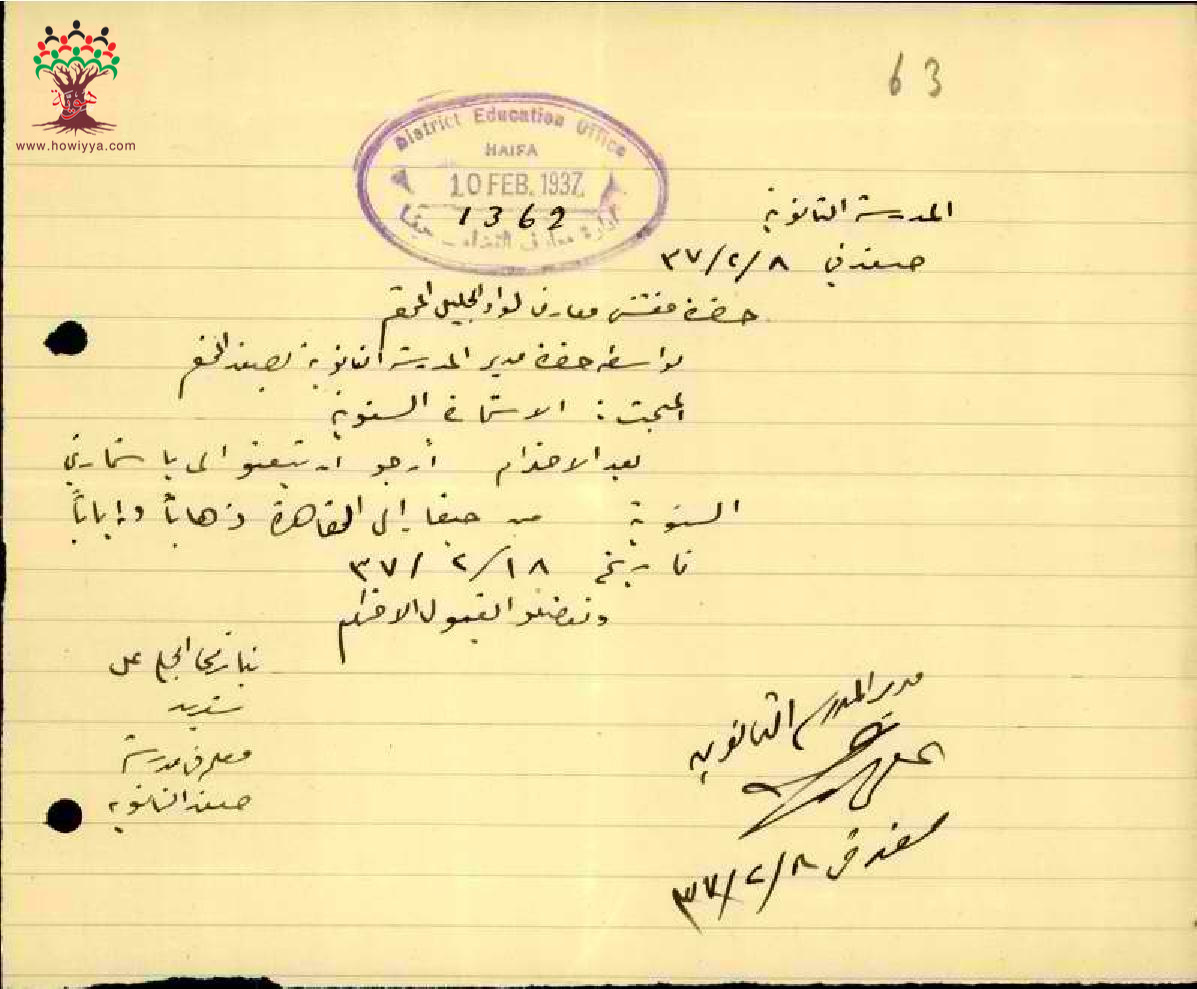 هوية
www.howiyya.com
63
District Education Office
HAIFA
10 FEB. 1937
1362
ادارة معارف القضاء - حيفا
المدرسة الثانوية
صفد في ٣٧/٢/٨
حضرة مفتش معارف لواء الجليل المحترم
بواسطة حضرة مدير المدرسة الثانوية بصفد المحترم
المبحث : الاستمارة السنوية
بعد الاحترام أرجو أن تبعثوا الى باستمارتي
السنوية من حيفا إلى القاهرة ذهاباً وإياباً
تاريخ ٣٧/٢/١٨
وتفضلوا بقبول الاحترام
مدير المدرسة الثانوية
صفد في ٣٧/٢/٨
معلم في مدرسة
صفد الثانوية